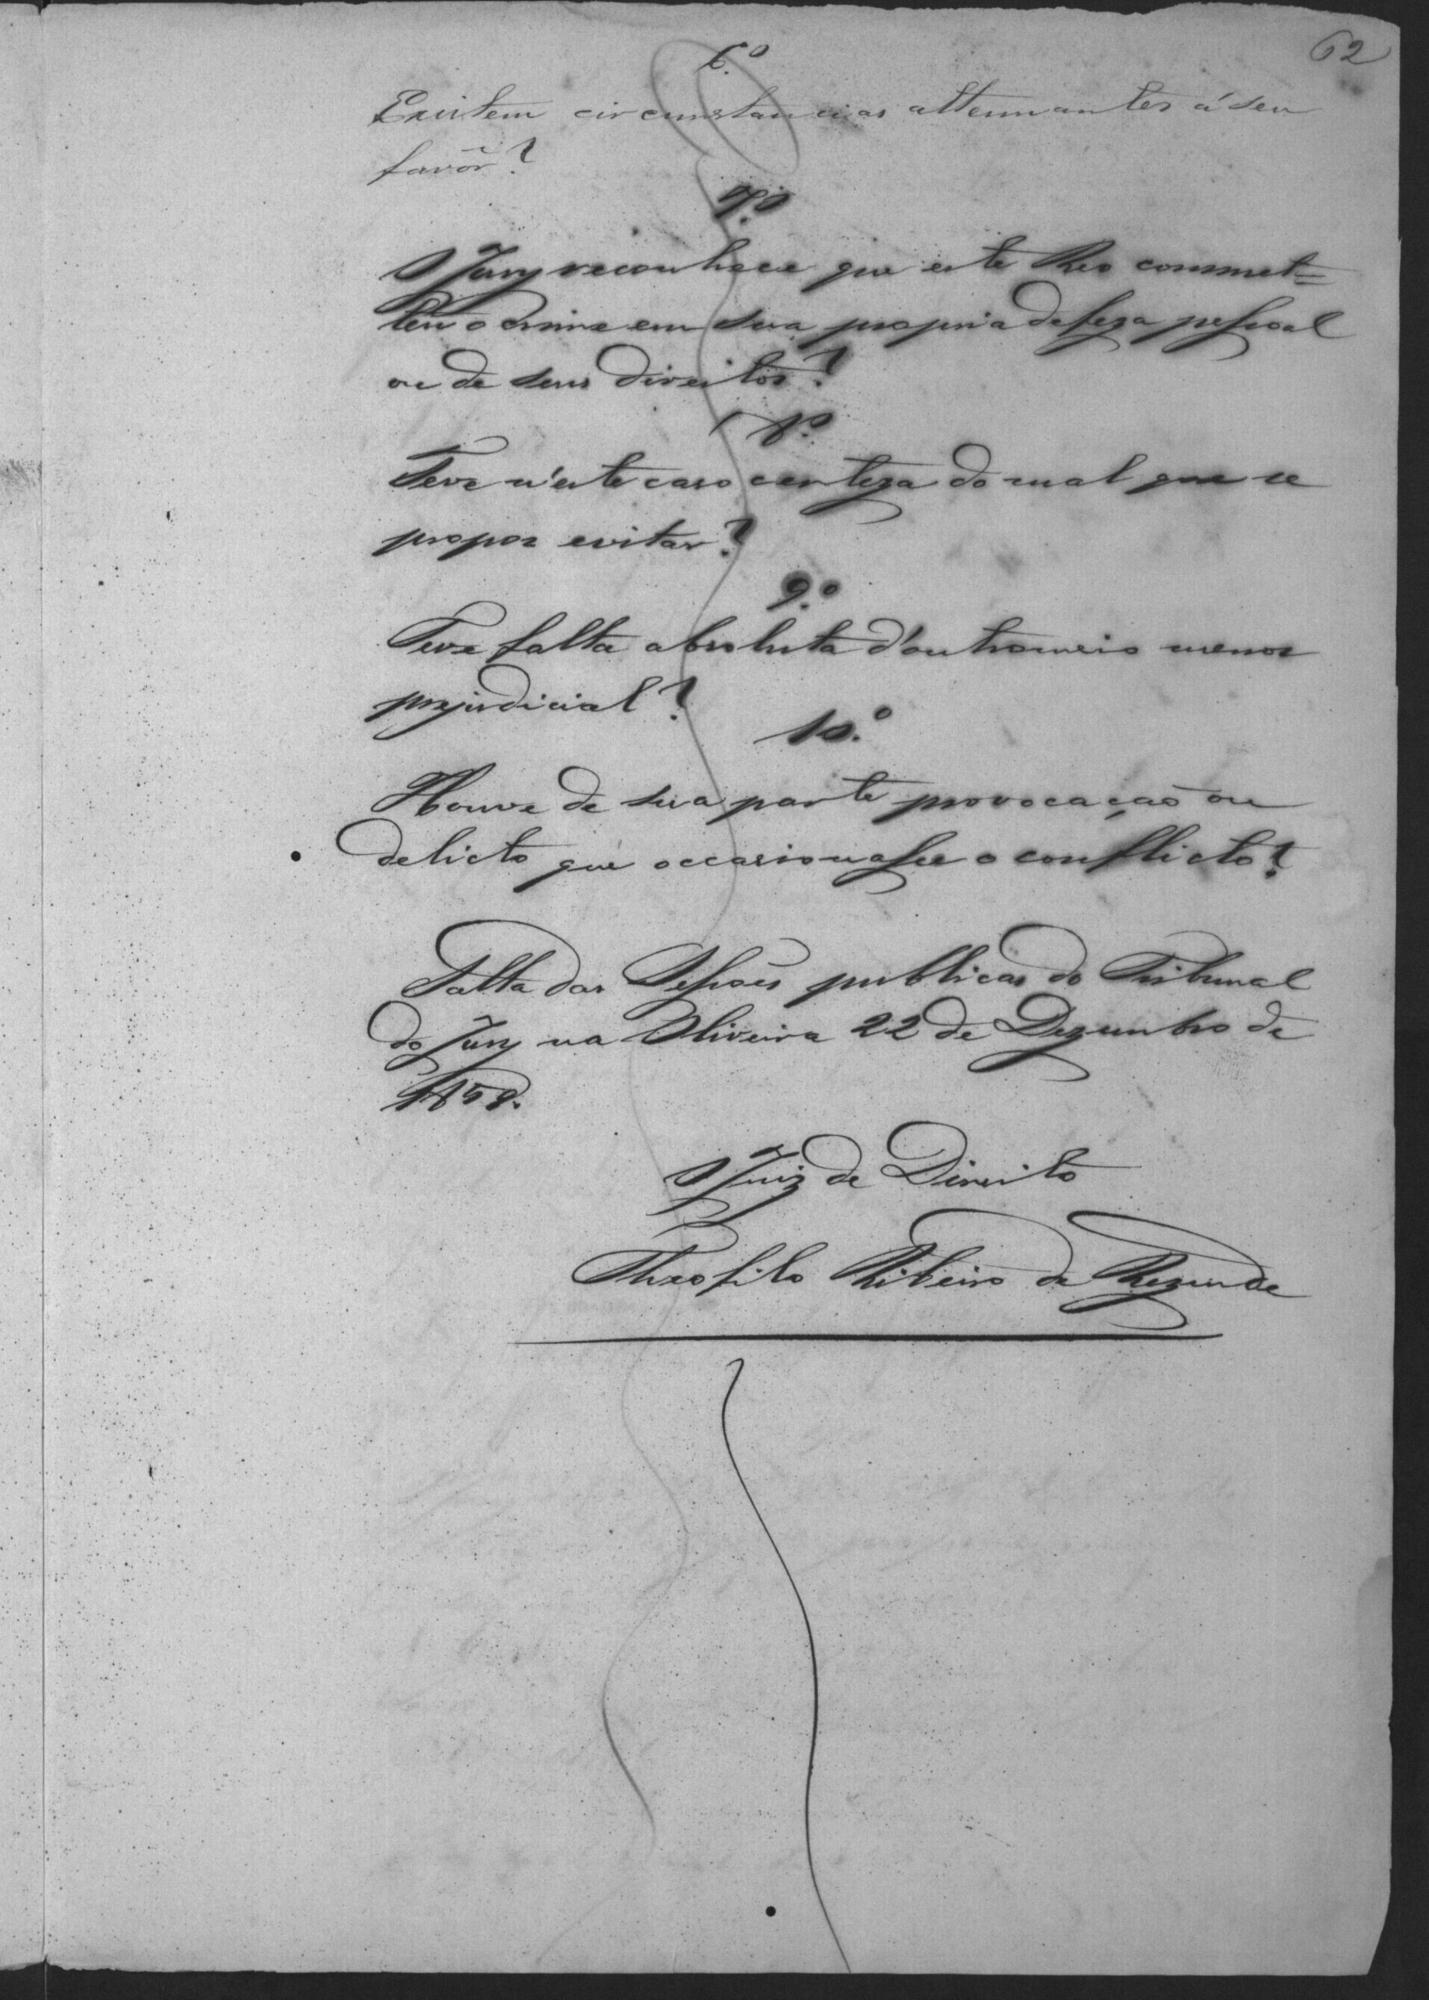 62
6.º
Existem circumstancias attenuantes á seu
favôr?
7.º
O Jury reconhece que este Reo commet=
teu o crime em sua propria defeza pessoal
ou de seus direitos?
8.º
Teve n'este caso certeza do mal que se
propoz evitar?
9.º
Teve falta absoluta d'outro meio menos
prejudicial?
10.º
Houve de sua parte provocação ou
delicto que occasionasse o conflicto?
Salla das Sessões publicas do Tribunal
do Jury na Oliveira 22 de Dezembro de
1858.
O Juiz de Direito
Theofilo Ribeiro de Rezende